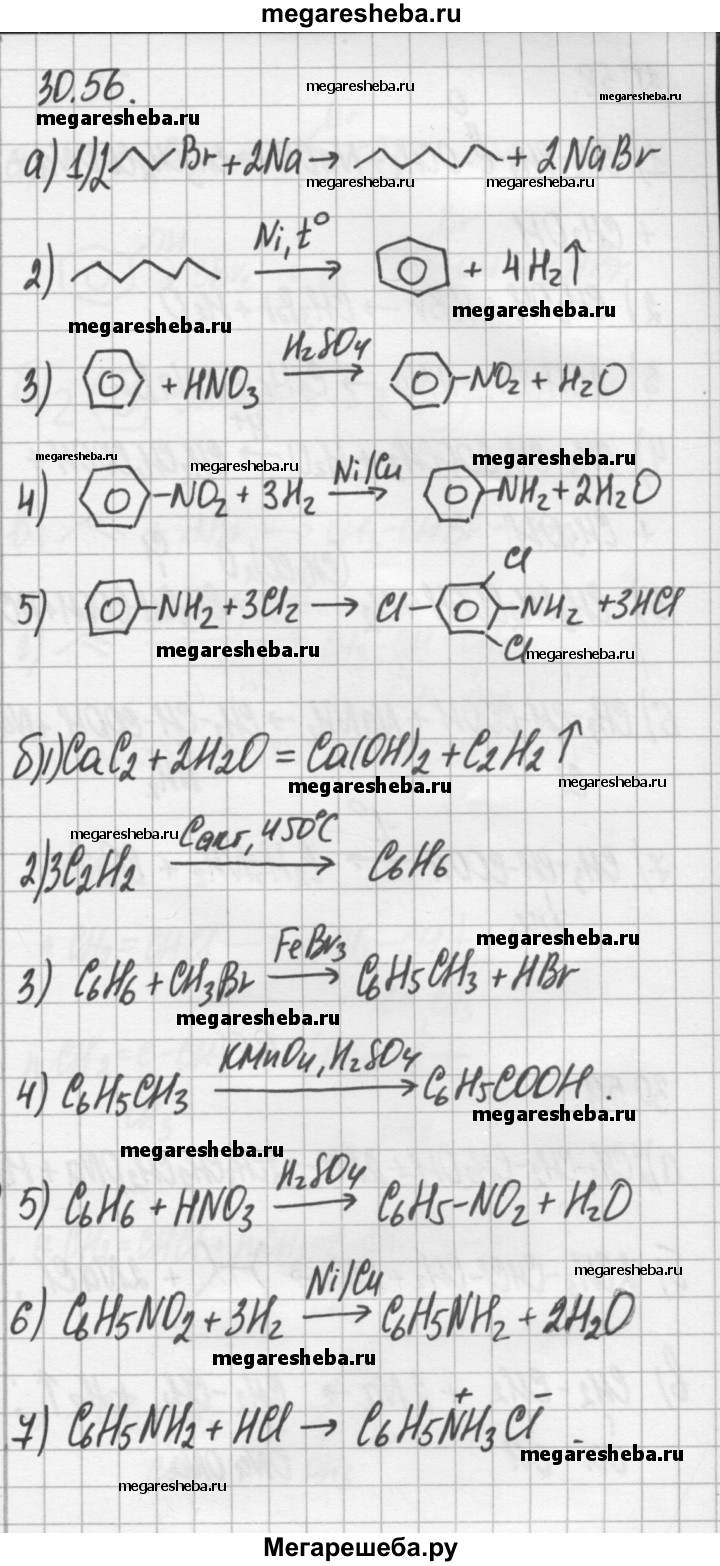 megaresheba.ru
30.56.
megaresheba.ru
megaresheba.ru
megaresheba.ru
а) 1) 2 Br + 2Na → + 2NaBr
megaresheba.ru megaresheba.ru
Ni, t°
2) → + 4H₂↑
megaresheba.ru megaresheba.ru
H₂SO₄
3) + HNO₃ → -NO₂ + H₂O
megaresheba.ru megaresheba.ru megaresheba.ru
Ni/Cu
4) -NO₂ + 3H₂ → -NH₂ + 2H₂O
Cl
5) -NH₂ + 3Cl₂ → Cl- -NH₂ + 3HCl
Cl
megaresheba.ru megaresheba.ru
б) 1) CaC₂ + 2H₂O = Ca(OH)₂ + C₂H₂↑
megaresheba.ru
megaresheba.ru Cакт, 450°C
2) 3C₂H₂ → C₆H₆
FeBr₃ megaresheba.ru
3) C₆H₆ + CH₃Br → C₆H₅CH₃ + HBr
megaresheba.ru
KMnO₄, H₂SO₄
4) C₆H₅CH₃ → C₆H₅COOH.
megaresheba.ru
megaresheba.ru
H₂SO₄
5) C₆H₆ + HNO₃ → C₆H₅-NO₂ + H₂O
megaresheba.ru
Ni/Cu
6) C₆H₅NO₂ + 3H₂ → C₆H₅NH₂ + 2H₂O
megaresheba.ru
7) C₆H₅NH₂ + HCl → C₆H₅N⁺H₃Cl⁻.
megaresheba.ru
megaresheba.ru
Мегарешеба.ру